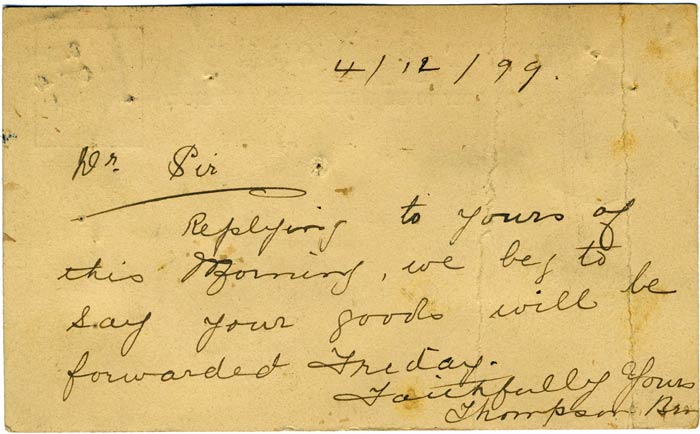 4/12/99.
Dr. Sir
Replying to yours of
this Morning, we beg to
say your goods will be
forwarded Friday.
Faithfully Yours
Thompson Bro